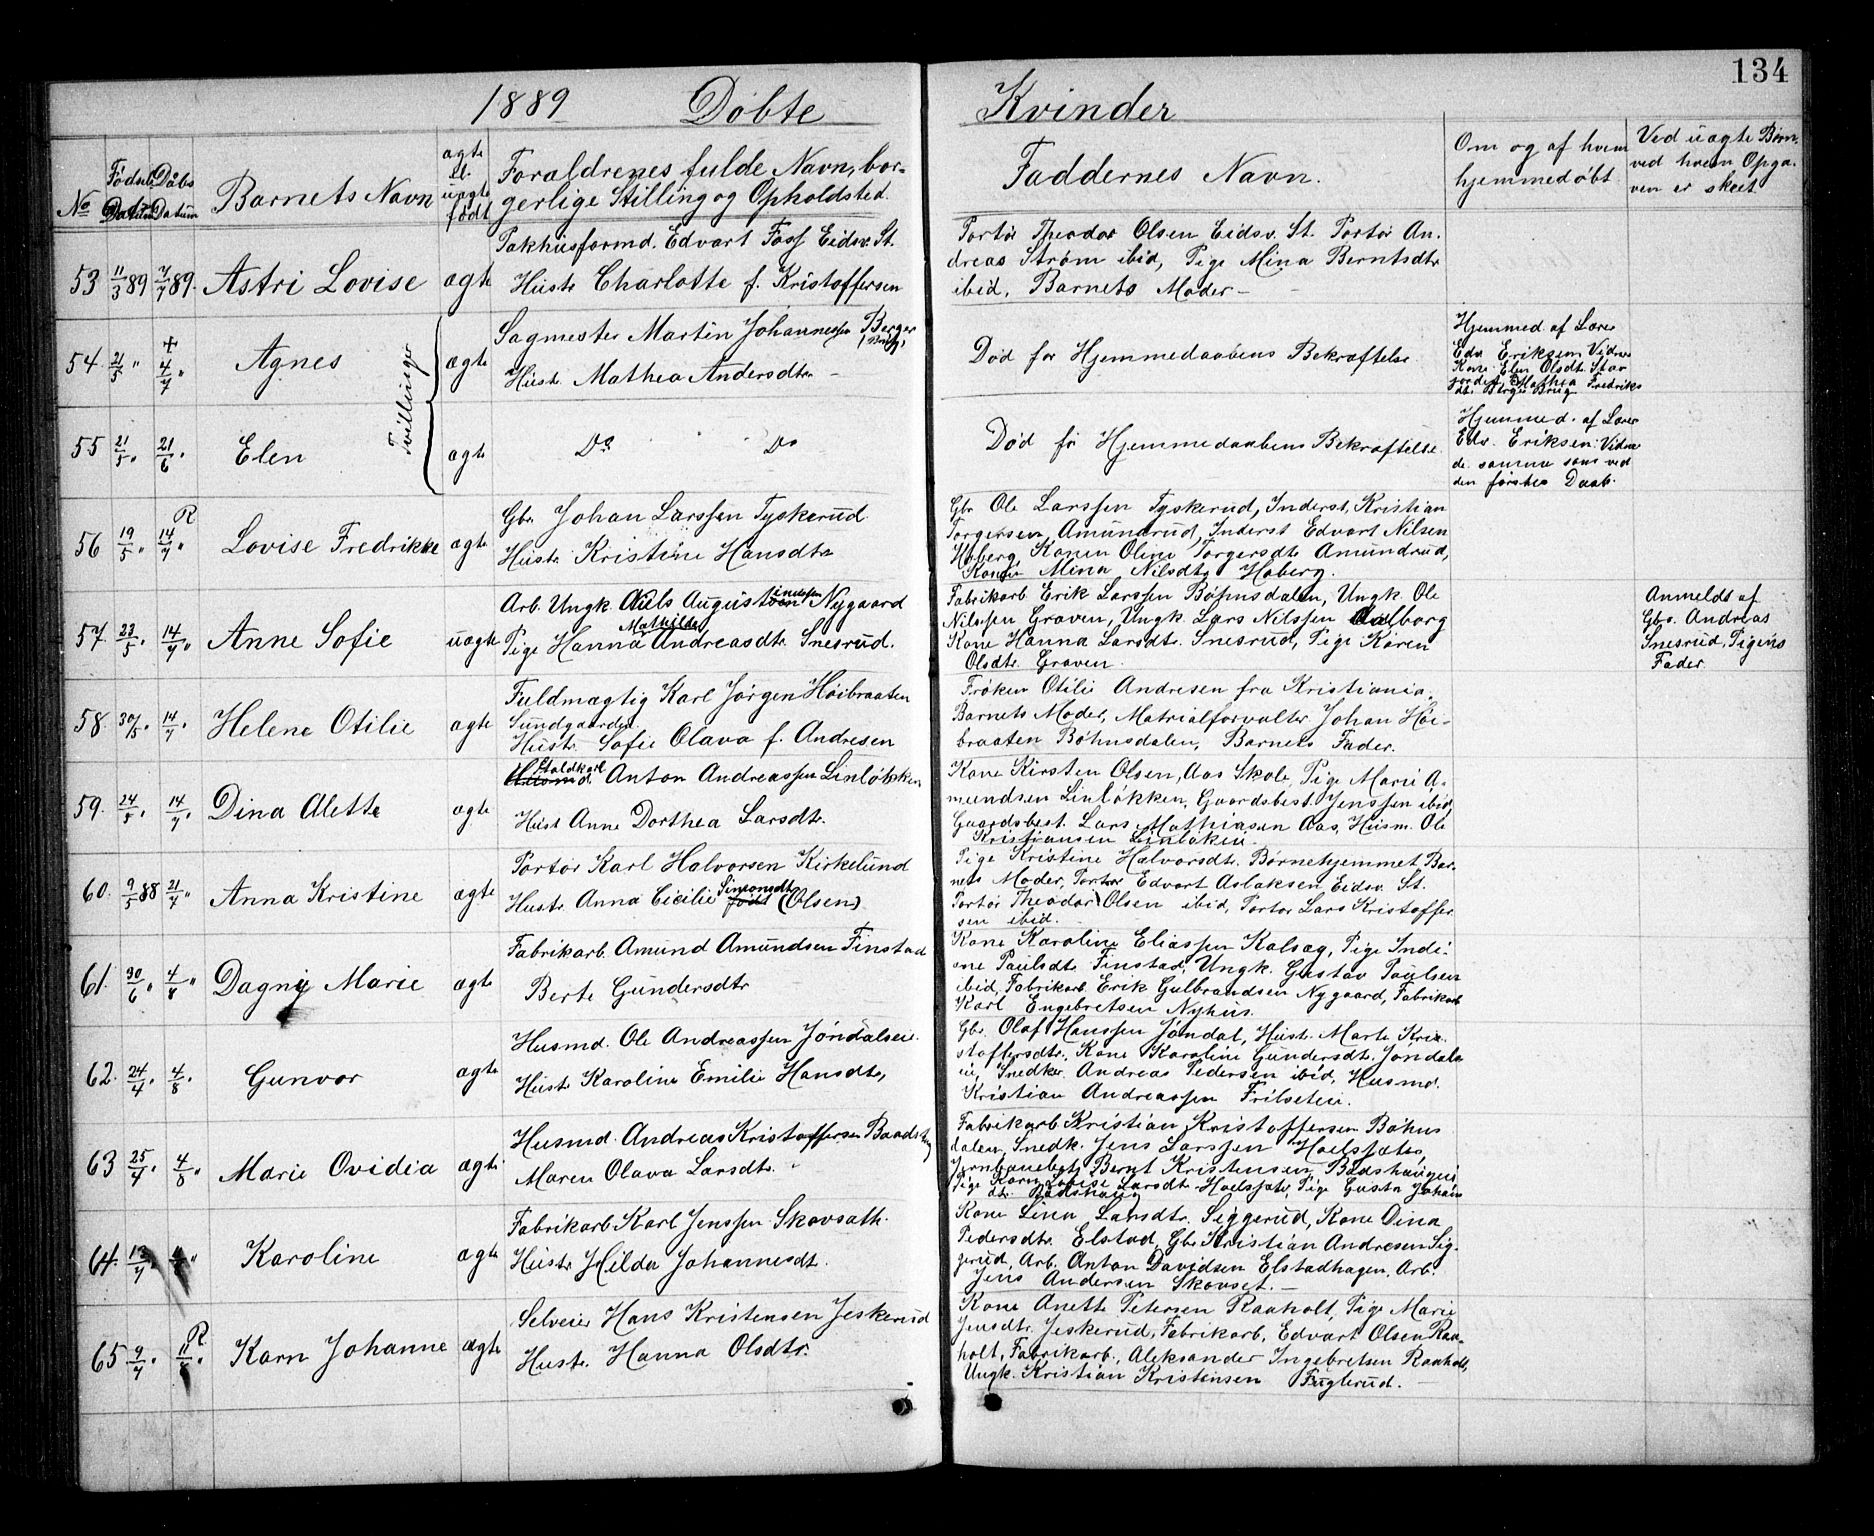 134
1889 Döbte Kvinder
No
Födsels Datum
Daabs Datum
Barnets Navn
ægte el. uægte født
Forældrenes fulde Navn, bor-
gerlige Stilling og Opholdsted.
Faddernes Navn.
Om og af hvem
hjemmedøbt
Ved uægte Børn,
ved hvem Opga-
ven er skeet
53 11/3 89 7/7 89. Astri Lovise ægte
Pakhusformd. Edvart Foss Eidsv. St.
Hustr. Charlotte f. Kristoffersen
Portör Theodor Olsen Eidsv. St. Portör An-
dreas Ström ibid, Pige Mina Berntsdtr
ibid, Barnets Moder –
54 21/5 " + 4/7 " Agnes ægte
Tvillinger
Sagmester Martin Johannessen Berger
Hustr. Mathea Andersdtr. –
Död før Hjemmedaabens Bekræftelse
Hjemmed. af Lærer
Edv. Eriksen, Vidner
Kone Elen Olsdtr.
Mathea Fredriks
dtr. Berger Brug
55 21/5 " 21/6 " Elen ægte
Do Do
Död för Hjemmedaabens Bekræftelse
Hjemmed. af Lærer
Edv. Eriksen. Vidner
de samme som ved
den første Daab.
56 19/5 " R 14/7 " Lovise Fredrikke ægte
Gbr. Johan Larssen Tyskerud
Hustr. Kristine Hansdtr
Gbr Ole Larssen Tyskerud, Inderst, Kristian
Torgersen Amundrud, Inderst Edvart Nilsen
Hoberg, Konen Oline Torgersdtr Amundrud,
Konen Mina Nilsdtr Hoberg.
57. 23/5 " 14/7 " Anne Sofie uægte
Arb. Ungk. Nils Augustinussen Nygaard
Pige Hanna Mathilde Andreasdtr. Snesrud.
Fabrikarb Erik Larssen Böhnsdalen, Ungk. Ole
Nilssen Graven, Ungk. Lars Nilssen Aalborg
Kone Hanna Larsdtr. Snesrud, Pige Karen
Olsdtr. Graven.
Anmeldt af
Gbr. Andreas
Snesrud, Pigens
Fader
58. 30/5 " 14/7 " Helene Otilie ægte
Fuldmægtig Karl Jörgen Höibraaten
Sundgaarden
Hustr. Sofie Olava f. Andresen
Fröken Otilie Andresen fra Kristiania.
Barnets Moder, Matrialforvalter Johan Höi-
braaten Böhnsdalen, Barnets Fader.
59. 24/5 " 14/7 " Dina Alette ægte
Staldkarl Anton Andreassen Linlökken
Hust Anne Dorthea Larsdtr.
Kone Kirsten Olsen, Aas Skole, Pige Marie A-
mundsen Linlökken, Gaardsbest. Jenssen ibid
Gaardsbest. Lars Mathiasen Aas, Husm. Ole
Kristiansen Linløken.
60. 9/5 88 21/7 " Anna Kristine ægte
Portör Karl Halvorsen Kirkelund
Hustr. Anna Cicilie Simonsdtr født (Olsen)
Pige Kristine Halvorsdt. Børnehjemmet Bar-
nets Moder, Portør Edvart Aslaksen Eidsv. St.
Portör Theodor Olsen ibid, Portör Lars Kristoffer
sen ibid.
61. 30/6 " 4/8 " Dagny Marie ægte
Fabrikarb. Amund Amundsen Finstad
Berte Gundersdtr
Kone Karoline Eliassen Kalsag, Pige Indi-
ane Paulsdtr Finstad, Ungk. Gustav Paulsen
ibid, Fabrikarb. Erik Gulbrandsen Nygaard, Fabrikarb
Karl Engebretsen Nyhus.
62. 24/4 " 4/8 Gunvor ægte
Husmd. Ole Andreassen Jöndalseie.
Hustr Karoline Emilie Hansdtr,
Gbr. Olaf Hanssen Jöndal, Hust. Marte Kris-
stoffersdtr., Kone Karoline Gundersdtr. Jöndals
ei, Snedker Andreas Pedersen ibid, Husmd.
Kristian Andreassen Frilseteie.
63 25/4 " 4/8 " Marie Ovidia ægte
Husmd. Andreas Kristoffersen
Maren Olava Larsdtr.
Fabrikarb Kristian Kristoffersen Böhns
dalen, Snedk. Jens Larssen
Bernt Kristensen
Pige Karen Larsdtr. Pige Gusta Johans
dtr.
64. 13/7 " 4/8 " Karoline ægte
Fabrikarb Karl Jenssen Skovsath.
Hustr Hilda Johannesdt.
Kone Lina Larsdtr. Siggerud, Kone Dina
Pedersdtr. Elstad, Gbr Kristian Andresen Sig-
gerud, Arb. Anton Davidsen Elstadhagen, Arb.
Jens Andersen Skovset. –
65 9/7 " R. 11/8 " Karn Johanne ægte
Selveier Hans Kristensen Jeskerud
Hustr. Hanna Olsdtr.
Kone Anette Petersen Raaholt, Pige Marie
Jensdtr. Jeskerud, Fabrikarb. Edvart Olsen Raa-
holt, Fabrikarb., Aleksander Ingebretsen Raaholt,
Ungk. Kristian Kristensen Fuglerud. –